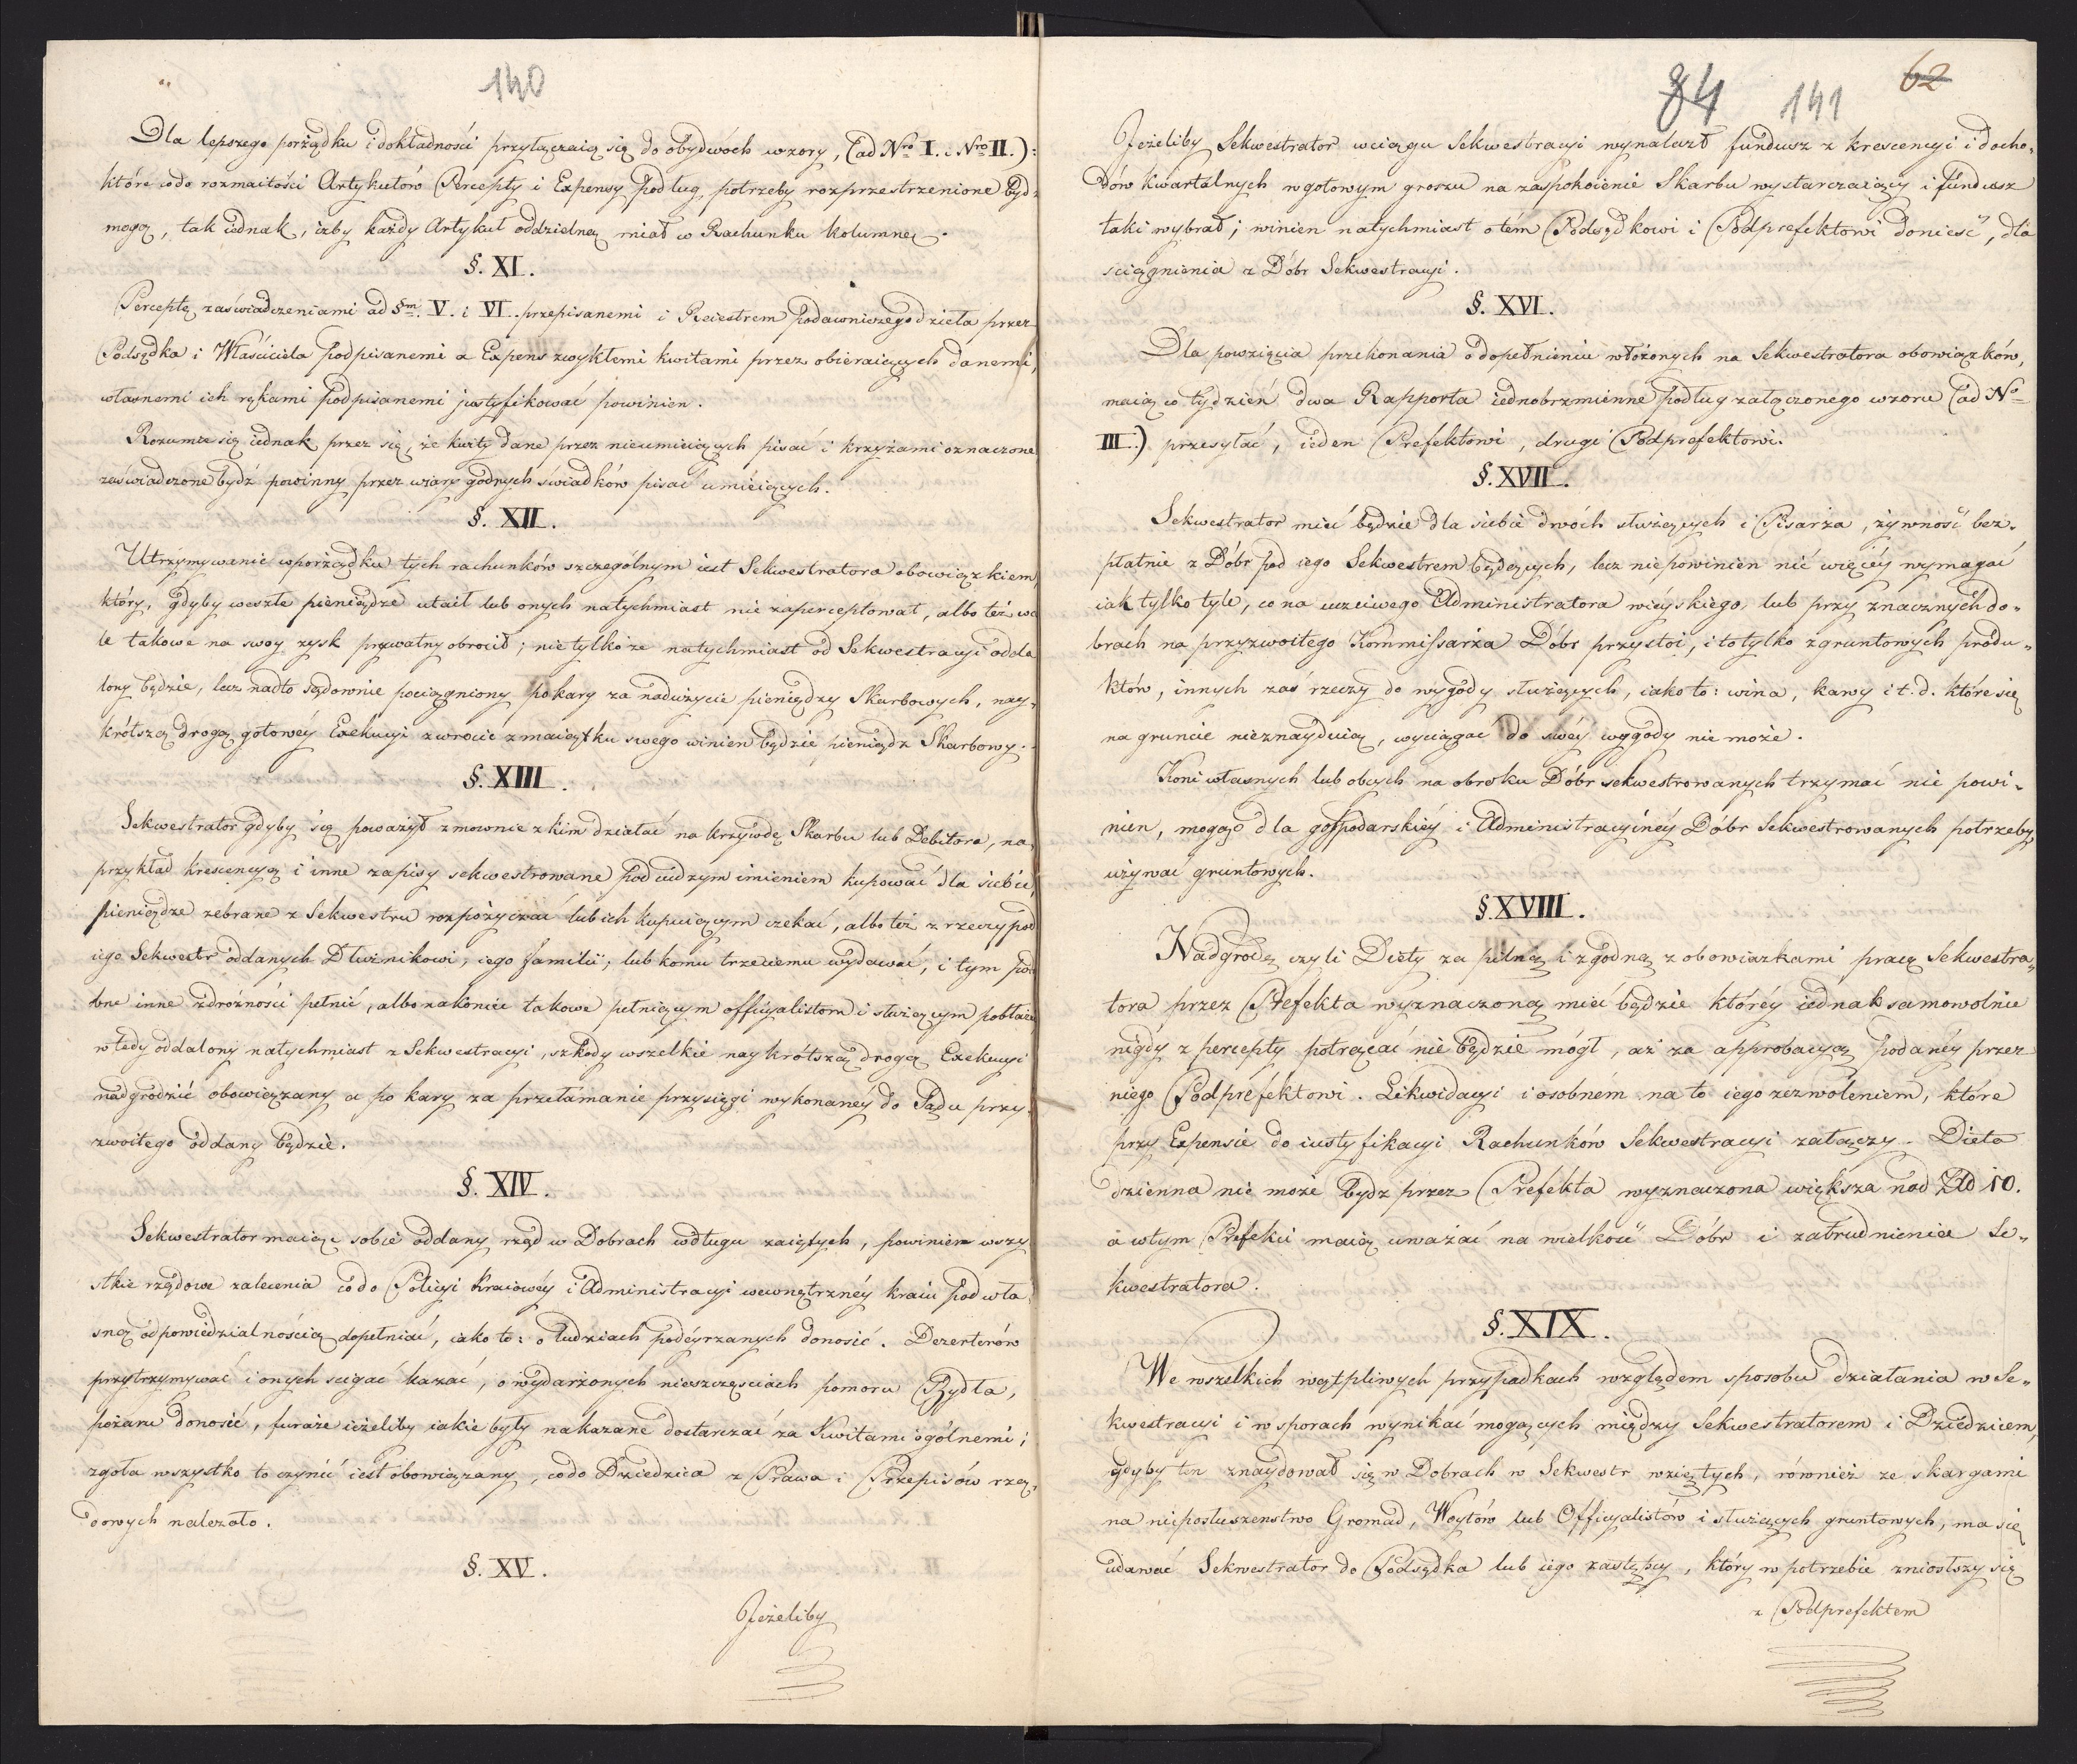 140
Dla lepszego porządku i dokładności przyłączaią się do obydwóch wzory, (ad Nro I. i Nro II.):
które co do rozmaitości Artykułów Percepty i Expensy podług potrzeby rozprzestrzenione bydź
mogą, tak iednak, iżby każdy Artykuł oddzielną miał w Rachunku kolumnę.
§. XI.
Perceptę zaświadczeniami ad §m V. i VI. przepisanemi i Reiestrem podawniczego dzieła przez
Podsędka i Właściciela podpisanemi a Expens zwykłemi kwitami przez obieraiących danemi,
własnemi ich rękami podpisanemi justyfikować powinien.
Rozumie się iednak przez się, że kwity dane przez nieumieiących pisać i krzyżami oznaczone
zaświadczone bydź powinny przez wiary godnych świadków pisać umieiących.
§. XII.
Utrzymywanie w porządku tych rachunków szczególnym iest Sekwestratora obowiązkiem,
który, gdyby weszłe pieniądze utaił lub onych natychmiast nie zaperceptował, albo też wca
le takowe na swoy zysk prywatny obrocił; nie tylko ze natychmiast od Sekwestracyi odda
lony będzie, lecz nadto sądownie pociągniony po kary za nadużycie pieniędzy Skarbowych, nay-
krótszą drogą gotowéy Exekucyi zwrocić z maiątku swego winien będzie pieniądz Skarbowy.
§. XIII.
Sekwestrator gdyby się poważył zmownie z kim działać na krzywdę Skarbu lub Debitora, na
przykład krescencyą i inne zapisy sekwestrowane pod cudzym imieniem kupować dla siebie,
pieniądze zebrane z Sekwestru rozpożyczać lub ich kupuiącym czekać, albo też z rzeczy pod
iego Sekwestr oddanych Dłużnikowi, iego familii, lub komu trzeciemu wydawać, i tym podo
bne inne zdrożności pełnić, albo nakoniec takowe pełniącym officyalistom i służącym pobłażać
wtedy oddalony natychmiast z Sekwestracyi, szkody wszelkie naykrótszą drogą Exekucyi
nadgrodzić obowiązany a po kary za przełamanie przysięgi wykonanéy do Sądu przy-
zwoitego oddany będzie.
§. XIV.
Sekwestrator maiąc sobie oddany rząd w Dobrach wdługu zaiętych, powinien wszy
stkie rządowe zalecenia co do Policyi kraiowéy i Administracyi wewnętrznéy kraiu pod wła-
sną odpowiedzialnością dopełniać, iako to: o ludziach podéyrzanych donosić. Dezerterów
przytrzymywać i onych scigać kazać, o wydarzonych nieszczęsciach pomoru Bydła,
pożaru donosić, furaże ieżeliby iakie były nakazane dostarczać za Kwitami ogólnemi;
zgoła wszystko to czynić iest obowiązany, co do Dziedzica z Prawa i Przepisów rzą-
dowych należało.
§. XV.
Jeżeliby
84 141 62
Jeżeliby Sekwestrator wciągu Sekwestracyi wynalazł fundusz z krescencyi i docho-
dów kwartalnych w gotowym groszu na zaspokoienie Skarbu wystarczaiący i fundusz
taki wybrał; winien natychmiast o tém Podsędkowi i Podprefektowi donieść, dla
sciągnienia z Dóbr Sekwestracyi.
§. XVI.
Dla powzięcia przekonania o dopełnieniu włożonych na Sekwestratora obowiązków,
maią co tydzień dwa Rapporta iednobrzmienne podług załączonego wzoru (ad No
III.) przesyłać, ieden Prefektowi, drugi Podprefektowi.
§. XVII.
Sekwestrator mieć będzie dla siebie dwóch służących i Pisarza, żywność bez-
płatnie z Dóbr pod iego Sekwestrem będących, lecz nie powinien nić więcéy wymagać
iak tylko tyle, co na uczciwego Administratora wieyskiego, lub przy znacznych do-
brach na przyzwoitego Kommissarza Dóbr przystoi, i to tylko z gruntowych produ-
któw, innych zaś rzeczy do wygody służących, iako to: wina, kawy i t. d. które się
na gruncie nieznayduią, wyciągać do swéy wygody nie może.
Koni własnych lub obcych na obroku Dóbr sekwestrowanych trzymać nie powi-
nien, mogąc dla gospodarskiéy i Administracyinéy Dóbr Sekwestrowanych potrzeby,
używać gruntowych.
§. XVIII.
Nadgrodę czyli Diety za pilną i zgodną z obowiazkami pracę Sekwestra-
tora przez Prefekta wyznaczoną mieć będzie któréy iednak samowolnie
nigdy z percepty potrącać nie będzie mógł, aż za approbacyą podanéy przez
niego Podprefektowi. Likwidacyi i osobném na to iego zezwoleniem, które
przy Expensie do iustyfikacyi Rachunków Sekwestracyi załączy. Dieta
dzienna nie może bydz przez Prefekta wyznaczona większa nad Złd 10.
a w tym Prefekci maią uważać na wielkość Dóbr i zatrudnienia Se-
kwestratora.
§. XIX.
We wszelkich wątpliwych przypadkach względem sposobu działania w Se-
kwestracyi i w sporach wynikać mogących między Sekwestratorem i Dziedzicem,
gdyby ten znaydował się w Dobrach w Sekwestr wziętych, również ze skargami
na nieposłuszenstwo Gromad, Woytów lub Officyalistów i służących gruntowych, ma się
udawać Sekwestrator do Podsędka lub iego zastępcy, który w potrzebie zniosłszy się
z Podprefektem